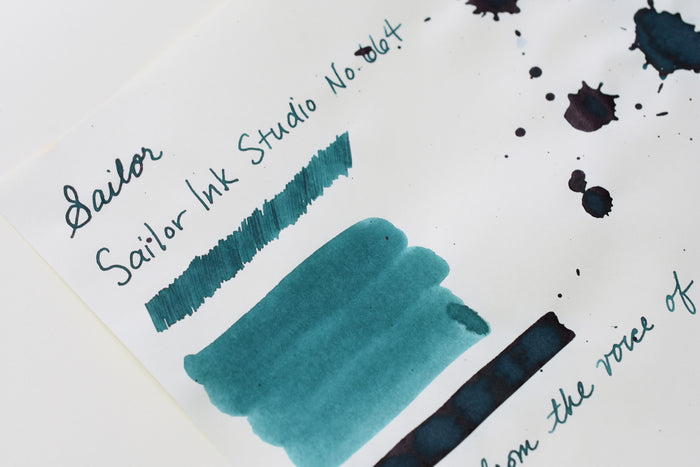 Sailor
Sailor Ink Studio No. 064
from the voice of